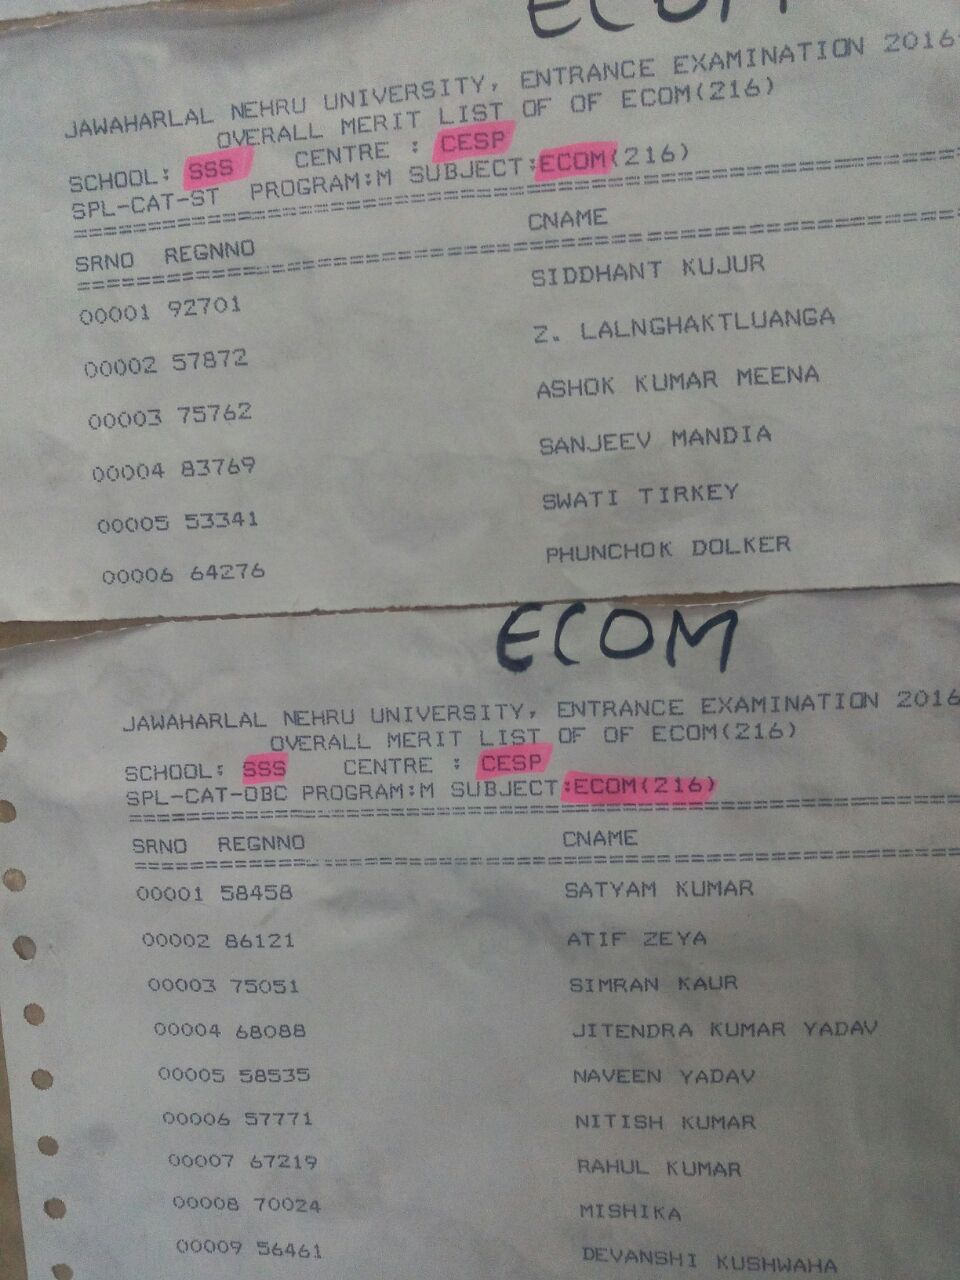 ECOM
JAWAHARLAL NEHRU UNIVERSITY, ENTRANCE EXAMINATION 2016
OVERALL MERIT LIST OF OF ECOM(216)
SCHOOL: SSS CENTRE : CESP
SPL-CAT-ST PROGRAM:M SUBJECT:ECOM(216)
SRNO REGNNO CNAME
00001 92701 SIDDHANT KUJUR
00002 57872 Z. LALNGHAKTLUANGA
00003 75762 ASHOK KUMAR MEENA
00004 83769 SANJEEV MANDIA
00005 53341 SWATI TIRKEY
00006 64276 PHUNCHOK DOLKER
ECOM
JAWAHARLAL NEHRU UNIVERSITY, ENTRANCE EXAMINATION 2016
OVERALL MERIT LIST OF OF ECOM(216)
SCHOOL: SSS CENTRE : CESP
SPL-CAT-OBC PROGRAM:M SUBJECT:ECOM(216)
SRNO REGNNO CNAME
00001 58458 SATYAM KUMAR
00002 86121 ATIF ZEYA
00003 75051 SIMRAN KAUR
00004 68088 JITENDRA KUMAR YADAV
00005 58535 NAVEEN YADAV
00006 57771 NITISH KUMAR
00007 67219 RAHUL KUMAR
00008 70024 MISHIKA
00009 56461 DEVANSHI KUSHWAHA